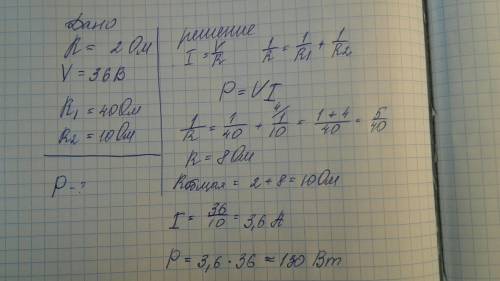 Дано
R = 2 Ом
V = 36 В
R1 = 40 Ом
R2 = 10 Ом
P - ?
решение
I = V/R 1/R = 1/R1 + 1/R2
P = VI
1/R = 1/40 + 4/ 1/10 = (1+4)/40 = 5/40
R = 8 Ом
Rобщая = 2 + 8 = 10 Ом
I = 36/10 = 3,6 А
P = 3,6 · 36 = 130 Вт